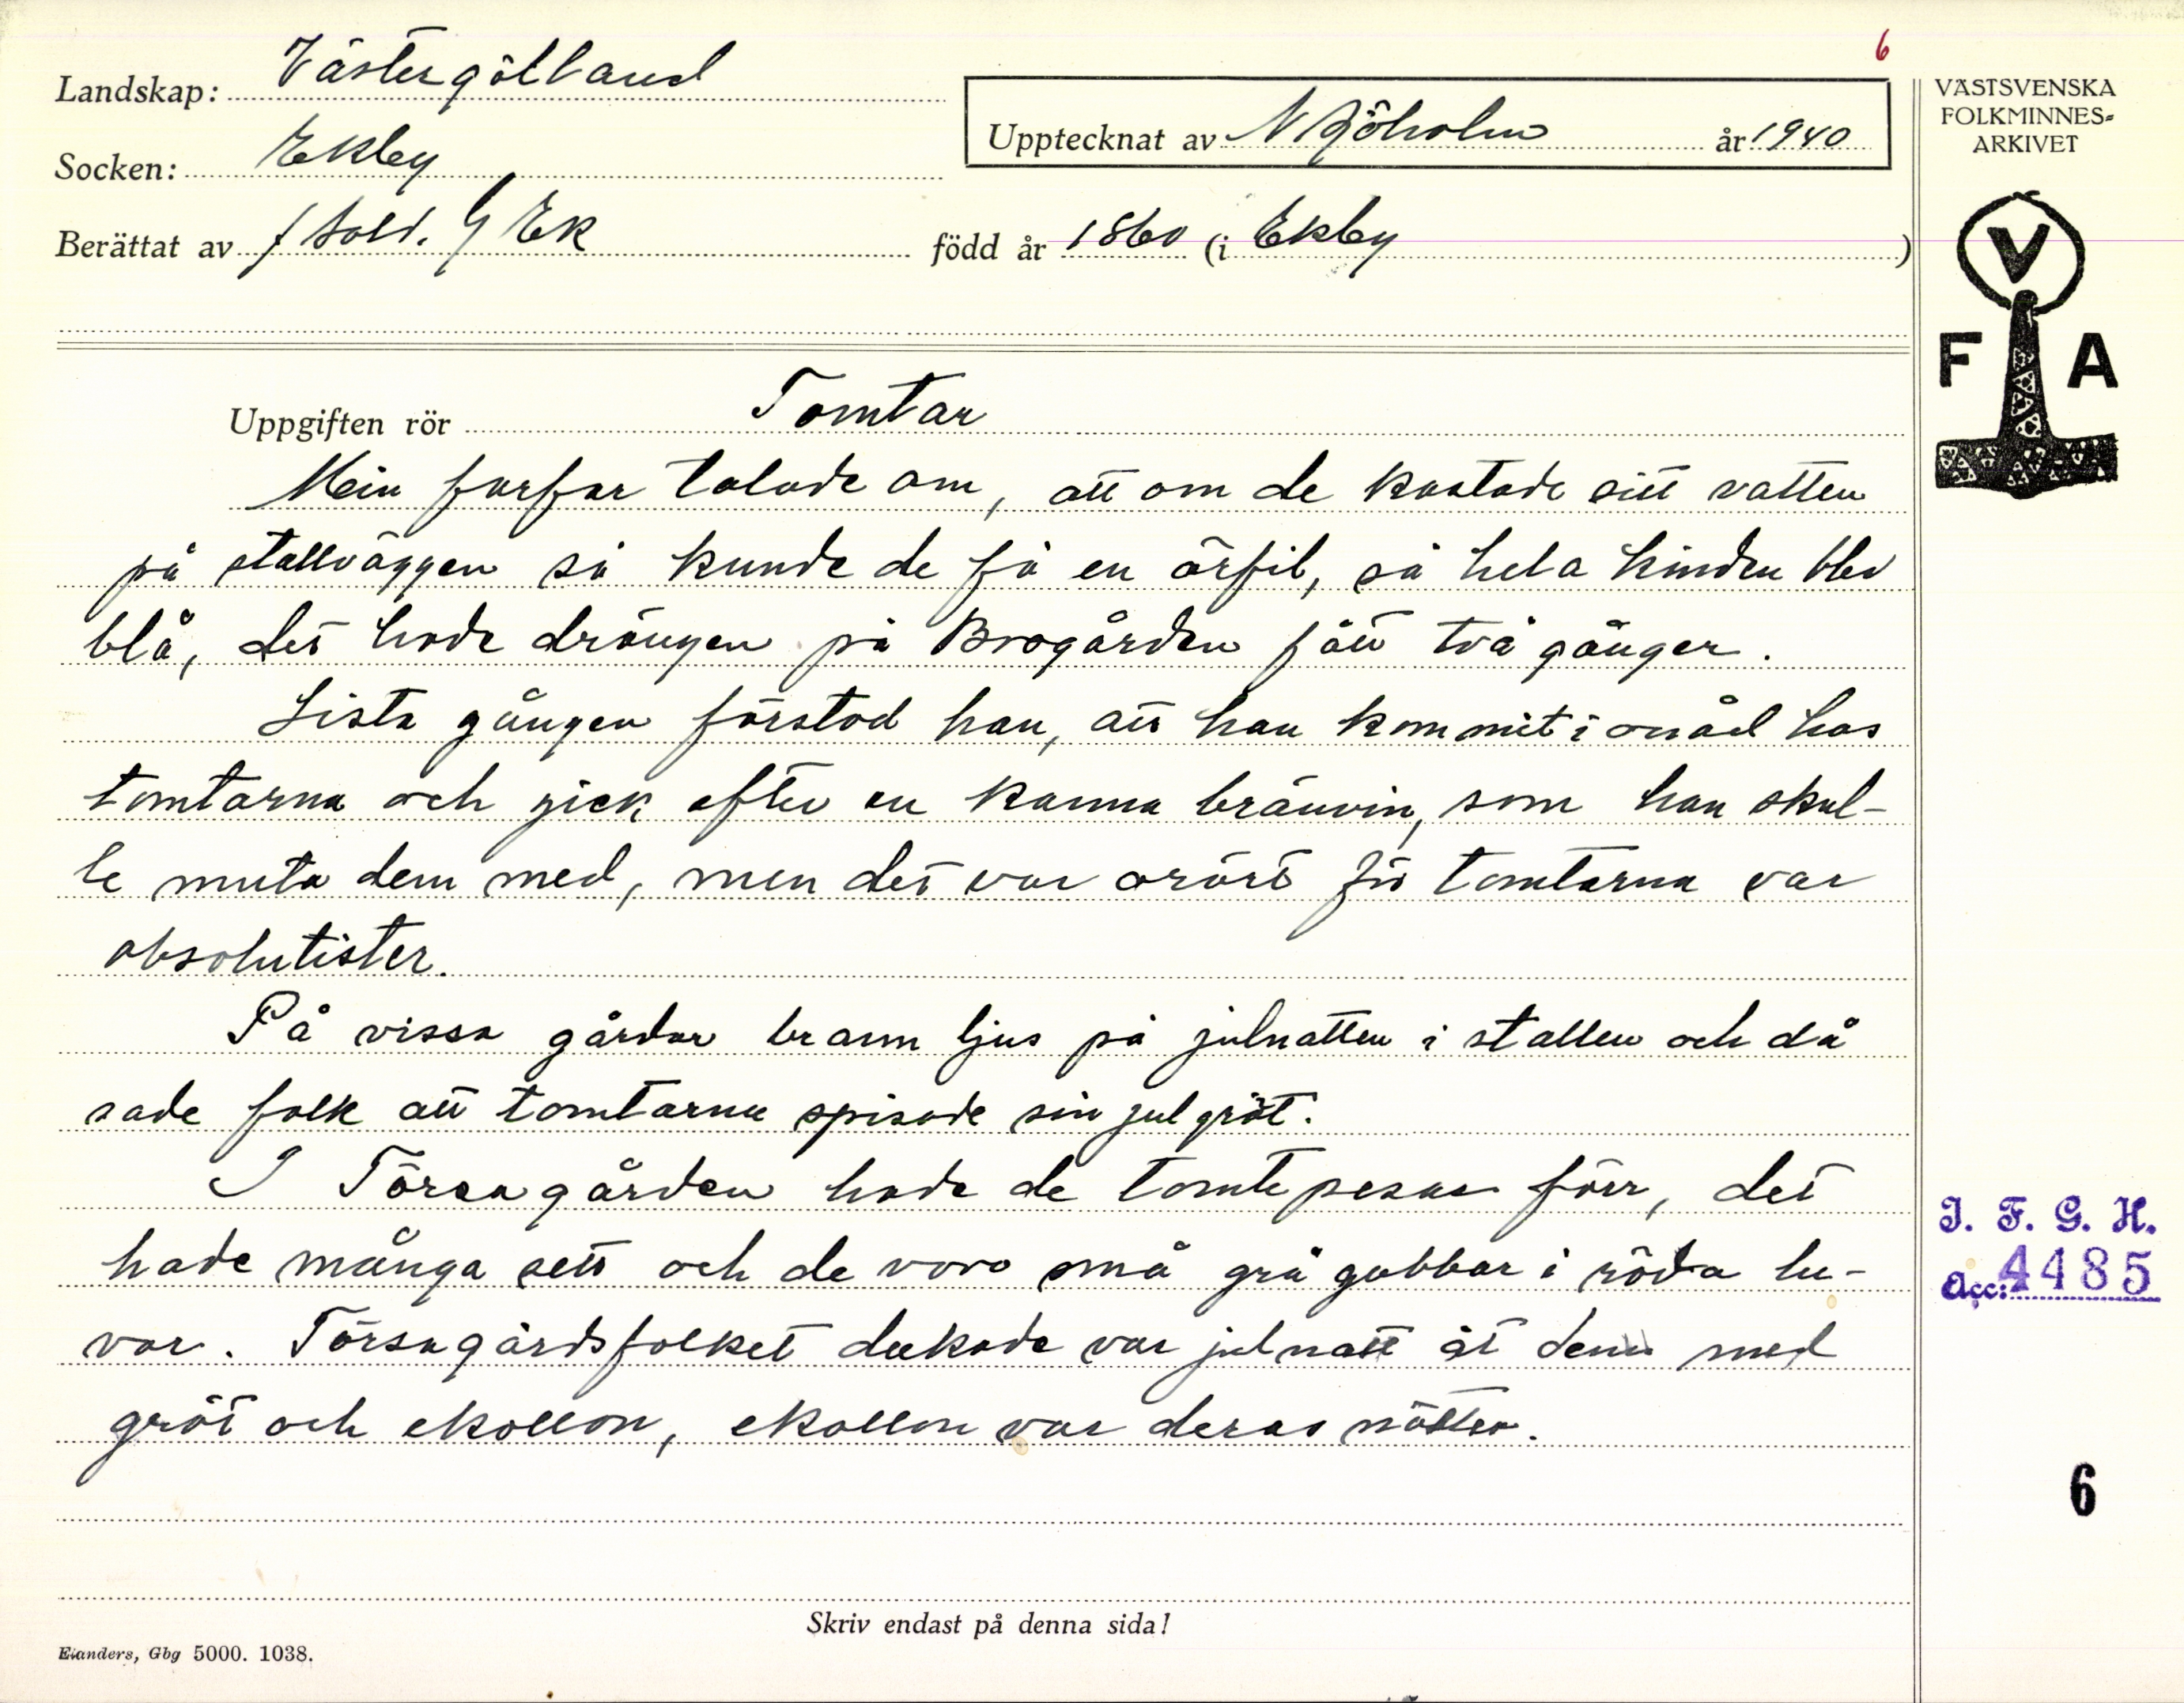 6
Landskap: Västergötland
Socken: Ekby
Upptecknat av N Sjöholm år 1940
Berättat av f sold. G Ek född år 1860 (i Ekby)
VÄSTSVENSKA
FOLKMINNES-
ARKIVET
V
F A
Uppgiften rör Tomtar
Min farfar talade om, att om de kastade sitt vatten
på stallväggen så kunde de få en örfil, så hela kinden blev
blå, det hade drängen på Brogården fått två gånger.
Sista gången förstod han, att han kommit i onåd hos
tomtarna och gick efter en kanna brännvin, som han skul-
le muta dem med, men det var orört för tomtarna var
absolutister.
På vissa gårdar brann ljus på julnatten i stallen och då
sade folk att tomtarna spisade sin julgröt.
I Törsagården hade de tomtepesar förr, det
hade många sett och de voro små grå gubbar i röda lu-
vor. Törsagårdsfolket dukade var julnatt åt dem med
gröt och ekollon, ekollon var deras nötter.
I. F. G. H.
Acc: 4485
6
Skriv endast på denna sida!
Elanders, Gbg 5000. 1038.